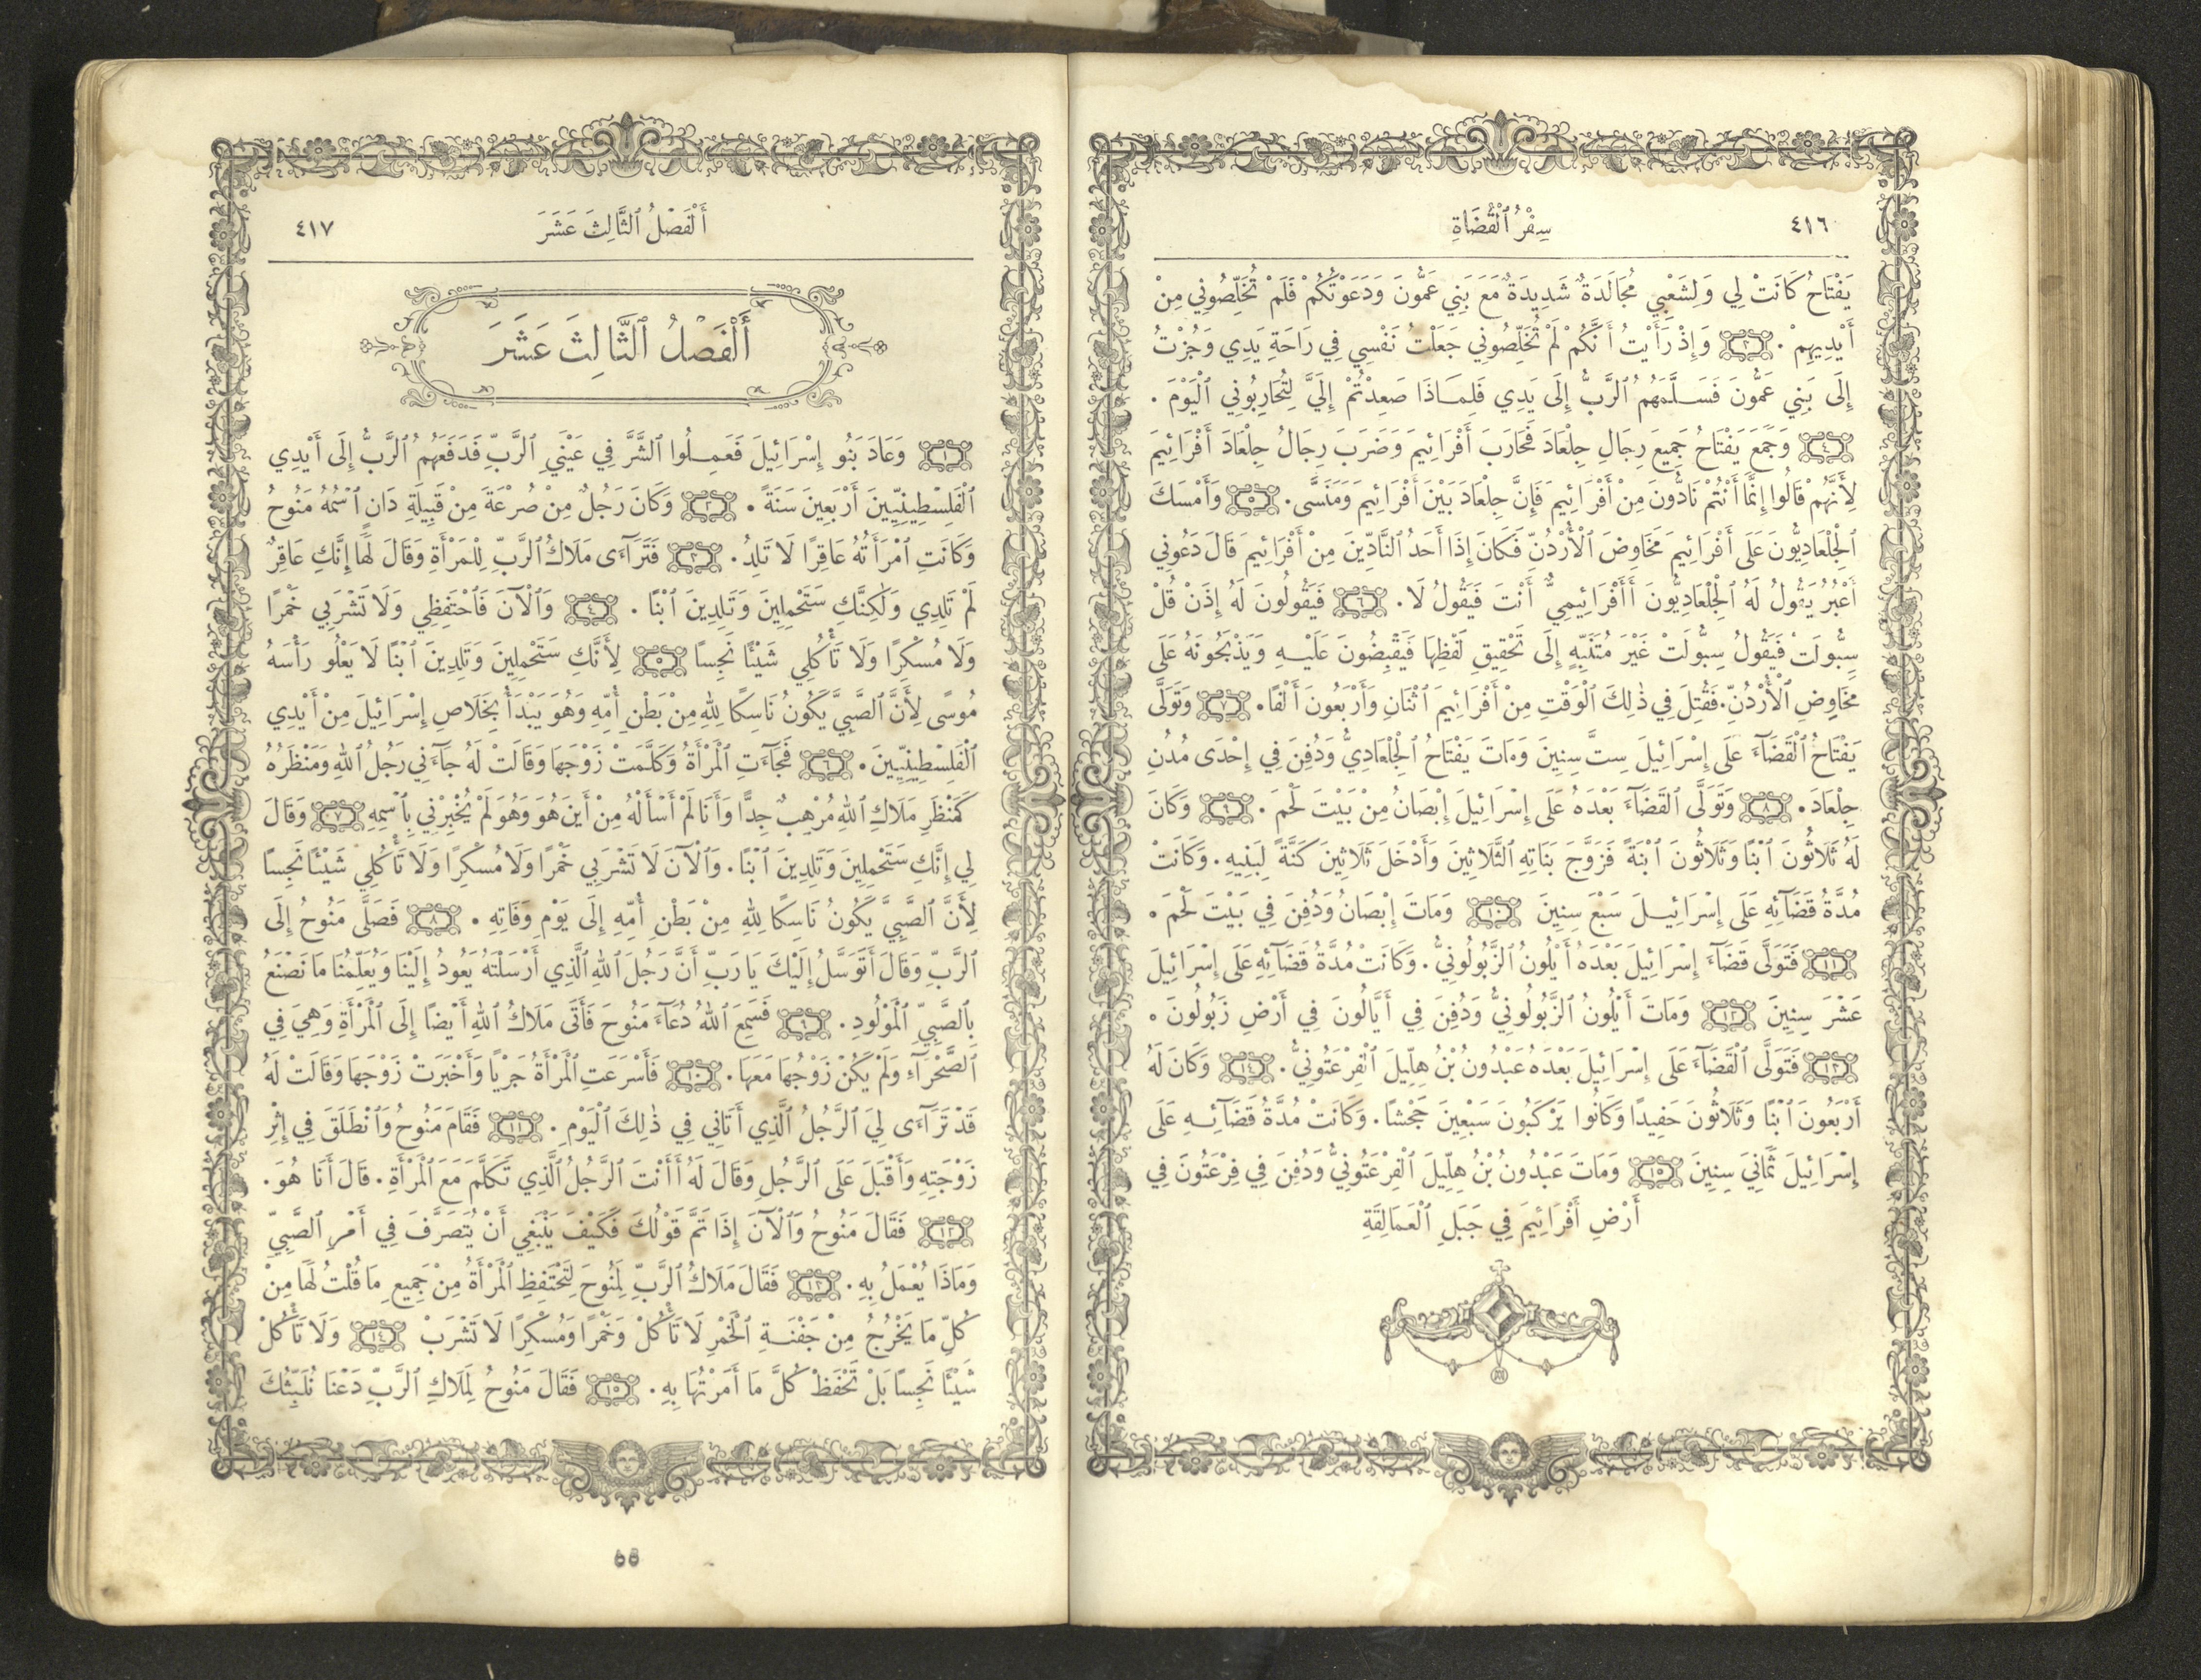 ٤١٦ سِفْرُ ٱلْقُضَاةِ
يَفْتَاحُ كَانَتْ لِي وَلِشَعْبِي مُجَالَدَةٌ شَدِيدَةٌ مَعَ بَنِي عَمُّونَ وَدَعَوْتُكُمْ فَلَمْ تُخَلِّصُونِي مِنْ
أَيْدِيهِمْ. ٣ وَإِذْ رَأَيْتُ أَنَّكُمْ لَمْ تُخَلِّصُونِي جَعَلْتُ نَفْسِي فِي رَاحَةِ يَدِي وَجُزْتُ
إِلَى بَنِي عَمُّونَ فَسَلَّمَهُمُ ٱلرَّبُّ إِلَى يَدِي فَلِمَاذَا صَعِدْتُمْ إِلَيَّ لِتُحَارِبُونِي ٱلْيَوْمَ.
٤ وَجَمَعَ يَفْتَاحُ جَمِيعَ رِجَالِ جِلْعَادَ فَحَارَبَ أَفْرَائِيمَ وَضَرَبَ رِجَالُ جِلْعَادَ أَفْرَائِيمَ
لِأَنَّهُمْ قَالُوا إِنَّمَا أَنْتُمْ نَادُّونَ مِنْ أَفْرَائِيمَ فَإِنَّ جِلْعَادَ بَيْنَ أَفْرَائِيمَ وَمَنَسَّى. ٥ وَأَمْسَكَ
ٱلْجِلْعَادِيُّونَ عَلَى أَفْرَائِيمَ مَخَاوِضَ ٱلْأُرْدُنِّ فَكَانَ إِذَا أَحَدُ ٱلنَّادِّينَ مِنْ أَفْرَائِيمَ قَالَ دَعُونِي
أَعْبُرُ يَقُولُ لَهُ ٱلْجِلْعَادِيُّونَ أَأَفْرَائِيمِيٌّ أَنْتَ فَيَقُولُ لَا. ٦ فَيَقُولُونَ لَهُ إِذَنْ قُلْ
سِبُّولَتْ فَيَقُولُ سِبُّولَتْ غَيْرَ مُتَنَبِّهٍ إِلَى تَحْقِيقِ لَفْظِهَا فَيَقْبِضُونَ عَلَيْهِ وَيَذْبَحُونَهُ عَلَى
مَخَاوِضِ ٱلْأُرْدُنِّ. فَقُتِلَ فِي ذٰلِكَ ٱلْوَقْتِ مِنْ أَفْرَائِيمَ ٱثْنَانِ وَأَرْبَعُونَ أَلْفًا. ٧ وَتَوَلَّى
يَفْتَاحُ ٱلْقَضَآءَ عَلَى إِسْرَائِيلَ سِتَّ سِنِينَ وَمَاتَ يَفْتَاحُ ٱلْجِلْعَادِيُّ وَدُفِنَ فِي إِحْدَى مُدُنِ
جِلْعَادَ. ٨ وَتَوَلَّى ٱلْقَضَآءَ بَعْدَهُ عَلَى إِسْرَائِيلَ إِبْصَانُ مِنْ بَيْتَ لَحْمَ. ٩ وَكَانَ
لَهُ ثَلَاثُونَ ٱبْنًا وَثَلَاثُونَ ٱبْنَةً فَزَوَّجَ بَنَاتِهِ ٱلثَّلَاثِينَ وَأَدْخَلَ ثَلَاثِينَ كَنَّةً لِبَنِيهِ. وَكَانَتْ
مُدَّةُ قَضَآئِهِ عَلَى إِسْرَائِيلَ سَبْعَ سِنِينَ ١٠ وَمَاتَ إِبْصَانُ وَدُفِنَ فِي بَيْتَ لَحْمَ.
١١ فَتَوَلَّى قَضَآءَ إِسْرَائِيلَ بَعْدَهُ أَيْلُونُ ٱلزَّبُولُونِيُّ. وَكَانَتْ مُدَّةُ قَضَآئِهِ عَلَى إِسْرَائِيلَ
عَشْرَ سِنِينَ ١٢ وَمَاتَ أَيْلُونُ ٱلزَّبُولُونِيُّ وَدُفِنَ فِي أَيَّالُونَ فِي أَرْضِ زَبُولُونَ.
١٣ فَتَوَلَّى ٱلْقَضَآءَ عَلَى إِسْرَائِيلَ بَعْدَهُ عَبْدُونُ بْنُ هِلِّيلَ ٱلْفِرْعَتُونِيُّ. ١٤ وَكَانَ لَهُ
أَرْبَعُونَ ٱبْنًا وَثَلَاثُونَ حَفِيدًا وَكَانُوا يَرْكَبُونَ سَبْعِينَ جَحْشًا. وَكَانَتْ مُدَّةُ قَضَآئِهِ عَلَى
إِسْرَائِيلَ ثَمَانِيَ سِنِينَ ١٥ وَمَاتَ عَبْدُونُ بْنُ هِلِّيلَ ٱلْفِرْعَتُونِيُّ وَدُفِنَ فِي فِرْعَتُونَ فِي
أَرْضِ أَفْرَائِيمَ فِي جَبَلِ ٱلْعَمَالِقَةِ
أَلْفَصْلُ ٱلثَّالِثَ عَشَرَ ٤١٧
أَلْفَصْلُ ٱلثَّالِثَ عَشَرَ
١ وَعَادَ بَنُو إِسْرَائِيلَ فَعَمِلُوا ٱلشَّرَّ فِي عَيْنَيِ ٱلرَّبِّ فَدَفَعَهُمُ ٱلرَّبُّ إِلَى أَيْدِي
ٱلْفَلِسْطِينِيِّينَ أَرْبَعِينَ سَنَةً. ٢ وَكَانَ رَجُلٌ مِنْ صُرْعَةَ مِنْ قَبِيلَةِ دَانٍ ٱسْمُهُ مَنُوحُ
وَكَانَتِ ٱمْرَأَتُهُ عَاقِرًا لَا تَلِدُ. ٣ فَتَرَآءَى مَلَاكُ ٱلرَّبِّ لِلْمَرْأَةِ وَقَالَ لَهَا إِنَّكِ عَاقِرٌ
لَمْ تَلِدِي وَلٰكِنَّكِ سَتَحْمِلِينَ وَتَلِدِينَ ٱبْنًا. ٤ وَٱلْآنَ فَٱحْتَفِظِي وَلَا تَشْرَبِي خَمْرًا
وَلَا مُسْكِرًا وَلَا تَأْكُلِي شَيْئًا نَجِسًا ٥ لِأَنَّكِ سَتَحْمِلِينَ وَتَلِدِينَ ٱبْنًا لَا يَعْلُو رَأْسَهُ
مُوسًى لِأَنَّ ٱلصَّبِيَّ يَكُونُ نَاسِكًا لِلهِ مِنْ بَطْنِ أُمِّهِ وَهُوَ يَبْدَأُ بِخَلَاصِ إِسْرَائِيلَ مِنْ أَيْدِي
ٱلْفَلِسْطِينِيِّينَ. ٦ فَجَآءَتِ ٱلْمَرْأَةُ وَكَلَّمَتْ زَوْجَهَا وَقَالَتْ لَهُ جَآءَنِي رَجُلُ ٱللهِ وَمَنْظَرُهُ
كَمَنْظَرِ مَلَاكِ ٱللهِ مُرْهِبٌ جِدًّا وَأَنَا لَمْ أَسْأَلْهُ مِنْ أَيْنَ هُوَ وَهُوَ لَمْ يُخْبِرْنِي بِٱسْمِهِ ٧ وَقَالَ
لِي إِنَّكِ سَتَحْمِلِينَ وَتَلِدِينَ ٱبْنًا. وَٱلْآنَ لَا تَشْرَبِي خَمْرًا وَلَا مُسْكِرًا وَلَا تَأْكُلِي شَيْئًا نَجِسًا
لِأَنَّ ٱلصَّبِيَّ يَكُونُ نَاسِكًا لِلهِ مِنْ بَطْنِ أُمِّهِ إِلَى يَوْمِ وَفَاتِهِ. ٨ فَصَلَّى مَنُوحُ إِلَى
ٱلرَّبِّ وَقَالَ أَتَوَسَّلُ إِلَيْكَ يَا رَبِّ أَنَّ رَجُلَ ٱللهِ ٱلَّذِي أَرْسَلْتَهُ يَعُودُ إِلَيْنَا وَيُعَلِّمُنَا مَا نَصْنَعُ
بِٱلصَّبِيِّ ٱلْمَوْلُودِ. ٩ فَسَمِعَ ٱللهُ دُعَآءَ مَنُوحَ فَأَتَى مَلَاكُ ٱللهِ أَيْضًا إِلَى ٱلْمَرْأَةِ وَهِيَ فِي
ٱلصَّحْرَآءِ وَلَمْ يَكُنْ زَوْجُهَا مَعَهَا. ١٠ فَأَسْرَعَتِ ٱلْمَرْأَةُ جَرْيًا وَأَخْبَرَتْ زَوْجَهَا وَقَالَتْ لَهُ
قَدْ تَرَآءَى لِيَ ٱلرَّجُلُ ٱلَّذِي أَتَانِي فِي ذٰلِكَ ٱلْيَوْمِ. ١١ فَقَامَ مَنُوحُ وَٱنْطَلَقَ فِي إِثْرِ
زَوْجَتِهِ وَأَقْبَلَ عَلَى ٱلرَّجُلِ وَقَالَ لَهُ أَأَنْتَ ٱلرَّجُلُ ٱلَّذِي تَكَلَّمَ مَعَ ٱلْمَرْأَةِ. قَالَ أَنَا هُوَ.
١٢ فَقَالَ مَنُوحُ وَٱلْآنَ إِذَا تَمَّ قَوْلُكَ فَكَيْفَ يَنْبَغِي أَنْ يُتَصَرَّفَ فِي أَمْرِ ٱلصَّبِيِّ
وَمَاذَا يُعْمَلُ بِهِ. ١٣ فَقَالَ مَلَاكُ ٱلرَّبِّ لِمَنُوحَ لِتَحْتَفِظِ ٱلْمَرْأَةُ مِنْ جَمِيعِ مَا قُلْتُ لَهَا مِنْ
كُلِّ مَا يَخْرُجُ مِنْ جَفْنَةِ ٱلْخَمْرِ لَا تَأْكُلْ وَخَمْرًا وَمُسْكِرًا لَا تَشْرَبْ ١٤ وَلَا تَأْكُلْ
شَيْئًا نَجِسًا بَلْ تَحْفَظْ كُلَّ مَا أَمَرْتُهَا بِهِ. ١٥ فَقَالَ مَنُوحُ لِمَلَاكِ ٱلرَّبِّ دَعْنَا نُلَبِّثُكَ